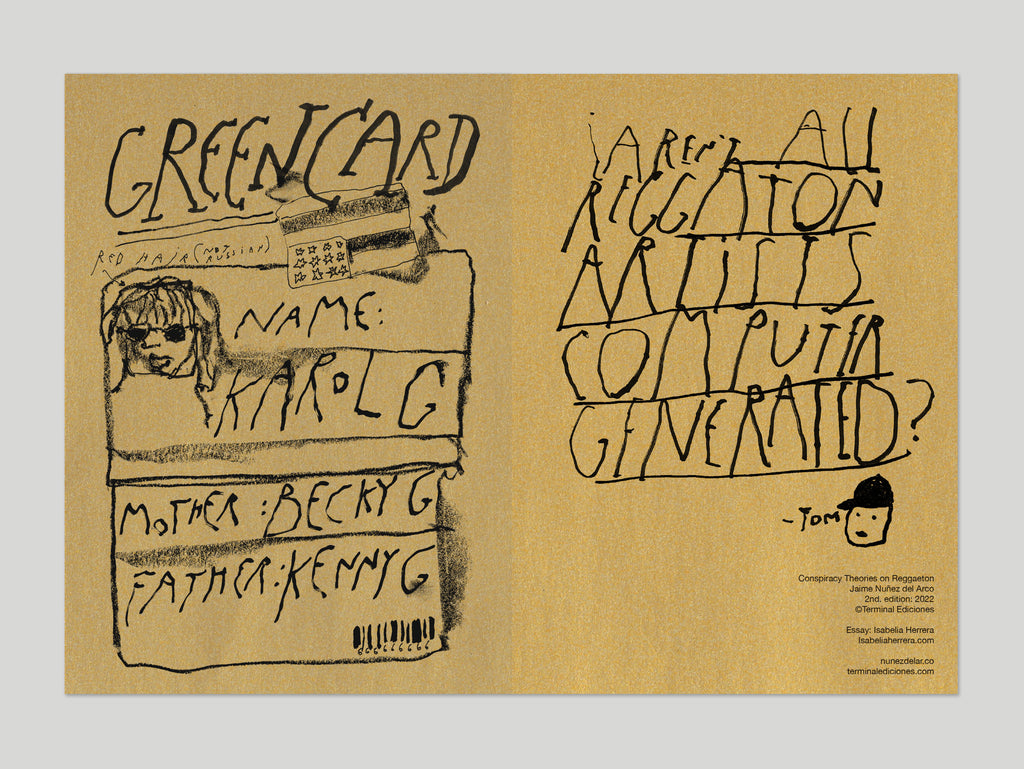 GREEN CARD
RED HAIR (NOT
RUSSIAN)
NAME:
KAROL G
MOTHER: BECKY G
FATHER: KENNY G
¡AREN'T ALL
REGGATON
ARTISTS
COMPUTER
GENERATED?
-TOM
Conspiracy Theories on Reggaeton
Jaime Nuñez del Arco
2nd. edition: 2022
©Terminal Ediciones
Essay: Isabelia Herrera
Isabeliaherrera.com
nunezdelar.co
terminalediciones.com